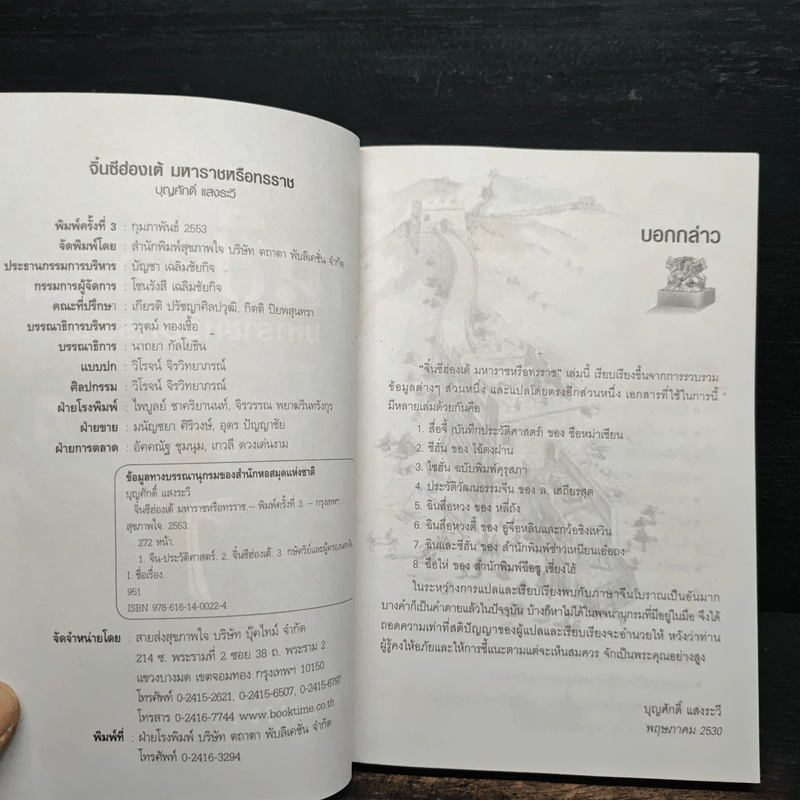 จิ๋นซีฮ่องเต้ มหาราชหรือทรราช
บุญศักดิ์ แสงระวี
พิมพ์ครั้งที่ 3 : กุมภาพันธ์ 2553
จัดพิมพ์โดย : สำนักพิมพ์สุขภาพใจ บริษัท ตถาตา พับลิเคชั่น จำกัด
ประธานกรรมการบริหาร : บัญชา เฉลิมชัยกิจ
กรรมการผู้จัดการ : โชนรังสี เฉลิมชัยกิจ
คณะที่ปรึกษา : เกียรติ ปรัชญาศิลปวุฒิ, กิตติ ปิยพสุนทรา
บรรณาธิการบริหาร : วรุตม์ ทองเชื้อ
บรรณาธิการ : นาถยา กัลโยธิน
แบบปก : วิโรจน์ จิรวิทยาภรณ์
ศิลปกรรม : วิโรจน์ จิรวิทยาภรณ์
ฝ่ายโรงพิมพ์ : ไพบูลย์ ชาคริยานนท์, จิรวรรณ พยาฆรินทรังกุร
ฝ่ายขาย : มนัญชยา ศิริวงษ์, อุดร ปัญญาชัย
ฝ่ายการตลาด : อัคคณัฐ ชุมนุม, เกวลี ดวงเด่นงาม
ข้อมูลทางบรรณานุกรมของสำนักหอสมุดแห่งชาติ
บุญศักดิ์ แสงระวี
จิ๋นซีฮ่องเต้ มหาราชหรือทรราช.-- พิมพ์ครั้งที่ 3. -- กรุงเทพฯ
สุขภาพใจ. 2553.
272 หน้า.
1. จีน-ประวัติศาสตร์. 2. จิ๋นซีฮ่องเต้. 3. กษัตริย์และผู้ครองนคร-จีน
I. ชื่อเรื่อง.
951
ISBN 978-616-14-0022-4
จัดจำหน่ายโดย : สายส่งสุขภาพใจ บริษัท บุ๊คไทม์ จำกัด
214 ซ. พระรามที่ 2 ซอย 38 ถ. พระราม 2
แขวงบางมด เขตจอมทอง กรุงเทพฯ 10150
โทรศัพท์ 0-2415-2621, 0-2415-6507, 0-2415-6797
โทรสาร 0-2416-7744 www.booktime.co.th
พิมพ์ที่ : ฝ่ายโรงพิมพ์ บริษัท ตถาตา พับลิเคชั่น จำกัด
โทรศัพท์ 0-2416-3294
บอกกล่าว
"จิ๋นซีฮ่องเต้ มหาราชหรือทรราช" เล่มนี้ เรียบเรียงขึ้นจากการรวบรวม
ข้อมูลต่างๆ ส่วนหนึ่ง และแปลโดยตรงอีกส่วนหนึ่ง เอกสารที่ใช้ในการนี้
มีหลายเล่มด้วยกันคือ
1. สื่อจี้ (บันทึกประวัติศาสตร์) ของ ซือหม่าเชียน
2. ซีฮั่น ของ ไช้ตงฝาน
3. ไซฮั่น ฉบับพิมพ์คุรุสภา
4. ประวัติวัฒนธรรมจีน ของ ล. เสถียรสุต
5. ฉินสื่อหวง ของ หลี่ถัง
6. ฉินสื่อหวงตี้ ของ อู๋จื่อหลินและกว้อซิงเหวิน
7. ฉินและซีฮั่น ของ สำนักพิมพ์ซ้าวเหนียนเอ๋อถง
8. ฉือไห่ ของ สำนักพิมพ์ฉือซู เซี่ยงไฮ้
ในระหว่างการแปลและเรียบเรียงพบกับภาษาจีนโบราณเป็นอันมาก
บางคำก็เป็นคำตายแล้วในปัจจุบัน บ้างก็หาไม่ได้ในพจนานุกรมที่มีอยู่ในมือ จึงได้
ถอดความเท่าที่สติปัญญาของผู้แปลและเรียบเรียงจะอำนวยให้ หวังว่าท่าน
ผู้รู้คงให้อภัยและให้การชี้แนะตามแต่จะเห็นสมควร จักเป็นพระคุณอย่างสูง
บุญศักดิ์ แสงระวี
พฤษภาคม 2530